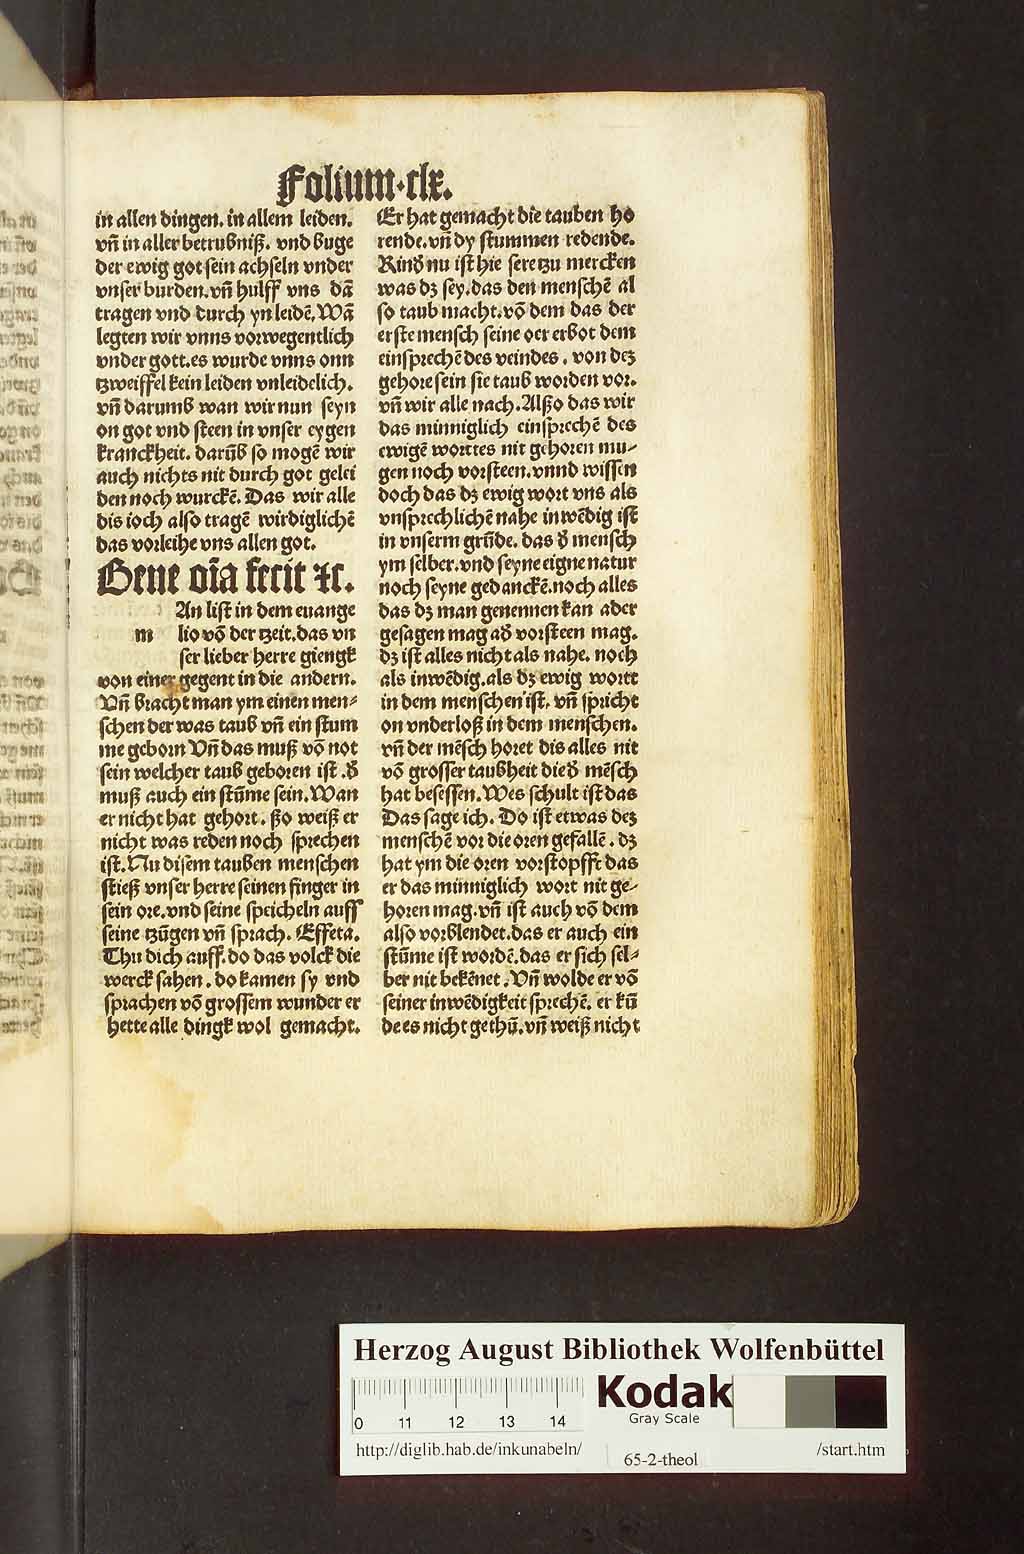 Folium·clx.
in allen dingen. in allem leiden.
vñ in aller betrubniß. vnd buge
der ewig got sein achseln vnder
vnser burden. vñ hulff vns dā
tragen vnd durch yn leidē. Wā
legten wir vnns vorwegentlich
vnder gott. es wurde vnns onn
tzweiffel kein leiden vnleidelich.
vñ darumb wan wir nun seyn
on got vnd steen in vnser eygen
kranckheit. darūb so mogē wir
auch nichts nit durch got gelei
den noch wurckē. Das wir alle
dis ioch also tragē wirdiglichē
das vorleihe vns allen got.
Bene oīa fecit ⁊c.
An list in dem euange
m lio vō der tzeit. das vn
ser lieber herre giengk
von einer gegent in die andern.
Vñ bracht man ym einen men⸗
schen der was taub vñ ein stum
me geborn Vñ das muß vō not
sein welcher taub geboren ist. ð
muß auch ein stūme sein. Wan
er nicht hat gehort. ßo weiß er
nicht was reden noch sprechen
ist. Nu disem tauben menschen
stieß vnser herre seinen finger in
sein ore. vnd seine speicheln auff
seine tzūgen vñ sprach. Effeta.
Thu dich auff. do das volck die
werck sahen. do kamen sy vnd
sprachen vō grossem wunder er
hette alle dingk wol gemacht.
Er hat gemacht die tauben ho
rende. vñ dy stummen redende.
Kinð nu ist hie sere tzu mercken
was dz sey. das den menschē al
so taub macht. vō dem das der
erste mensch seine oer erbot dem
einsprechē des veindes. von dez
gehore sein sie taub worden vor.
vñ wir alle nach. Alßo das wir
das minniglich einsprechē des
ewigē worttes nit gehoren mu⸗
gen noch vorsteen. vnnd wissen
doch das dz ewig wort vns als
vnsprechlichē nahe inwēdig ist
in vnserm grūde. das ð mensch
ym selber. vnd seyne eigne natur
noch seyne gedanckē. noch alles
das dz man genennen kan ader
gesagen mag að vorsteen mag.
dz ist alles nicht als nahe. noch
als inwēdig. als dz ewig wortt
in dem menschen ist. vñ spricht
on vnderloß in dem menschen.
vñ der mēsch horet dis alles nit
vō grosser taubheit die ð mēsch
hat besessen. Wes schult ist das
Das sage ich. Do ist etwas dez
menschē vor die oren gefallē. dz
hat ym die oren vorstopfft das
er das minniglich wort nit ge⸗
horen mag. vñ ist auch vō dem
also vorblendet. das er auch ein
stūme ist wordē. das er sich sel⸗
ber nit bekēnet. Vñ wolde er vō
seiner inwēdigkeit sprechē. er kū
de es nicht gethū. vñ weiß nicht
Herzog August Bibliothek Wolfenbüttel
0 11 12 13 14
Kodak
Gray Scale
http://diglib.hab.de/inkunabeln/
65-2-theol
/start.htm